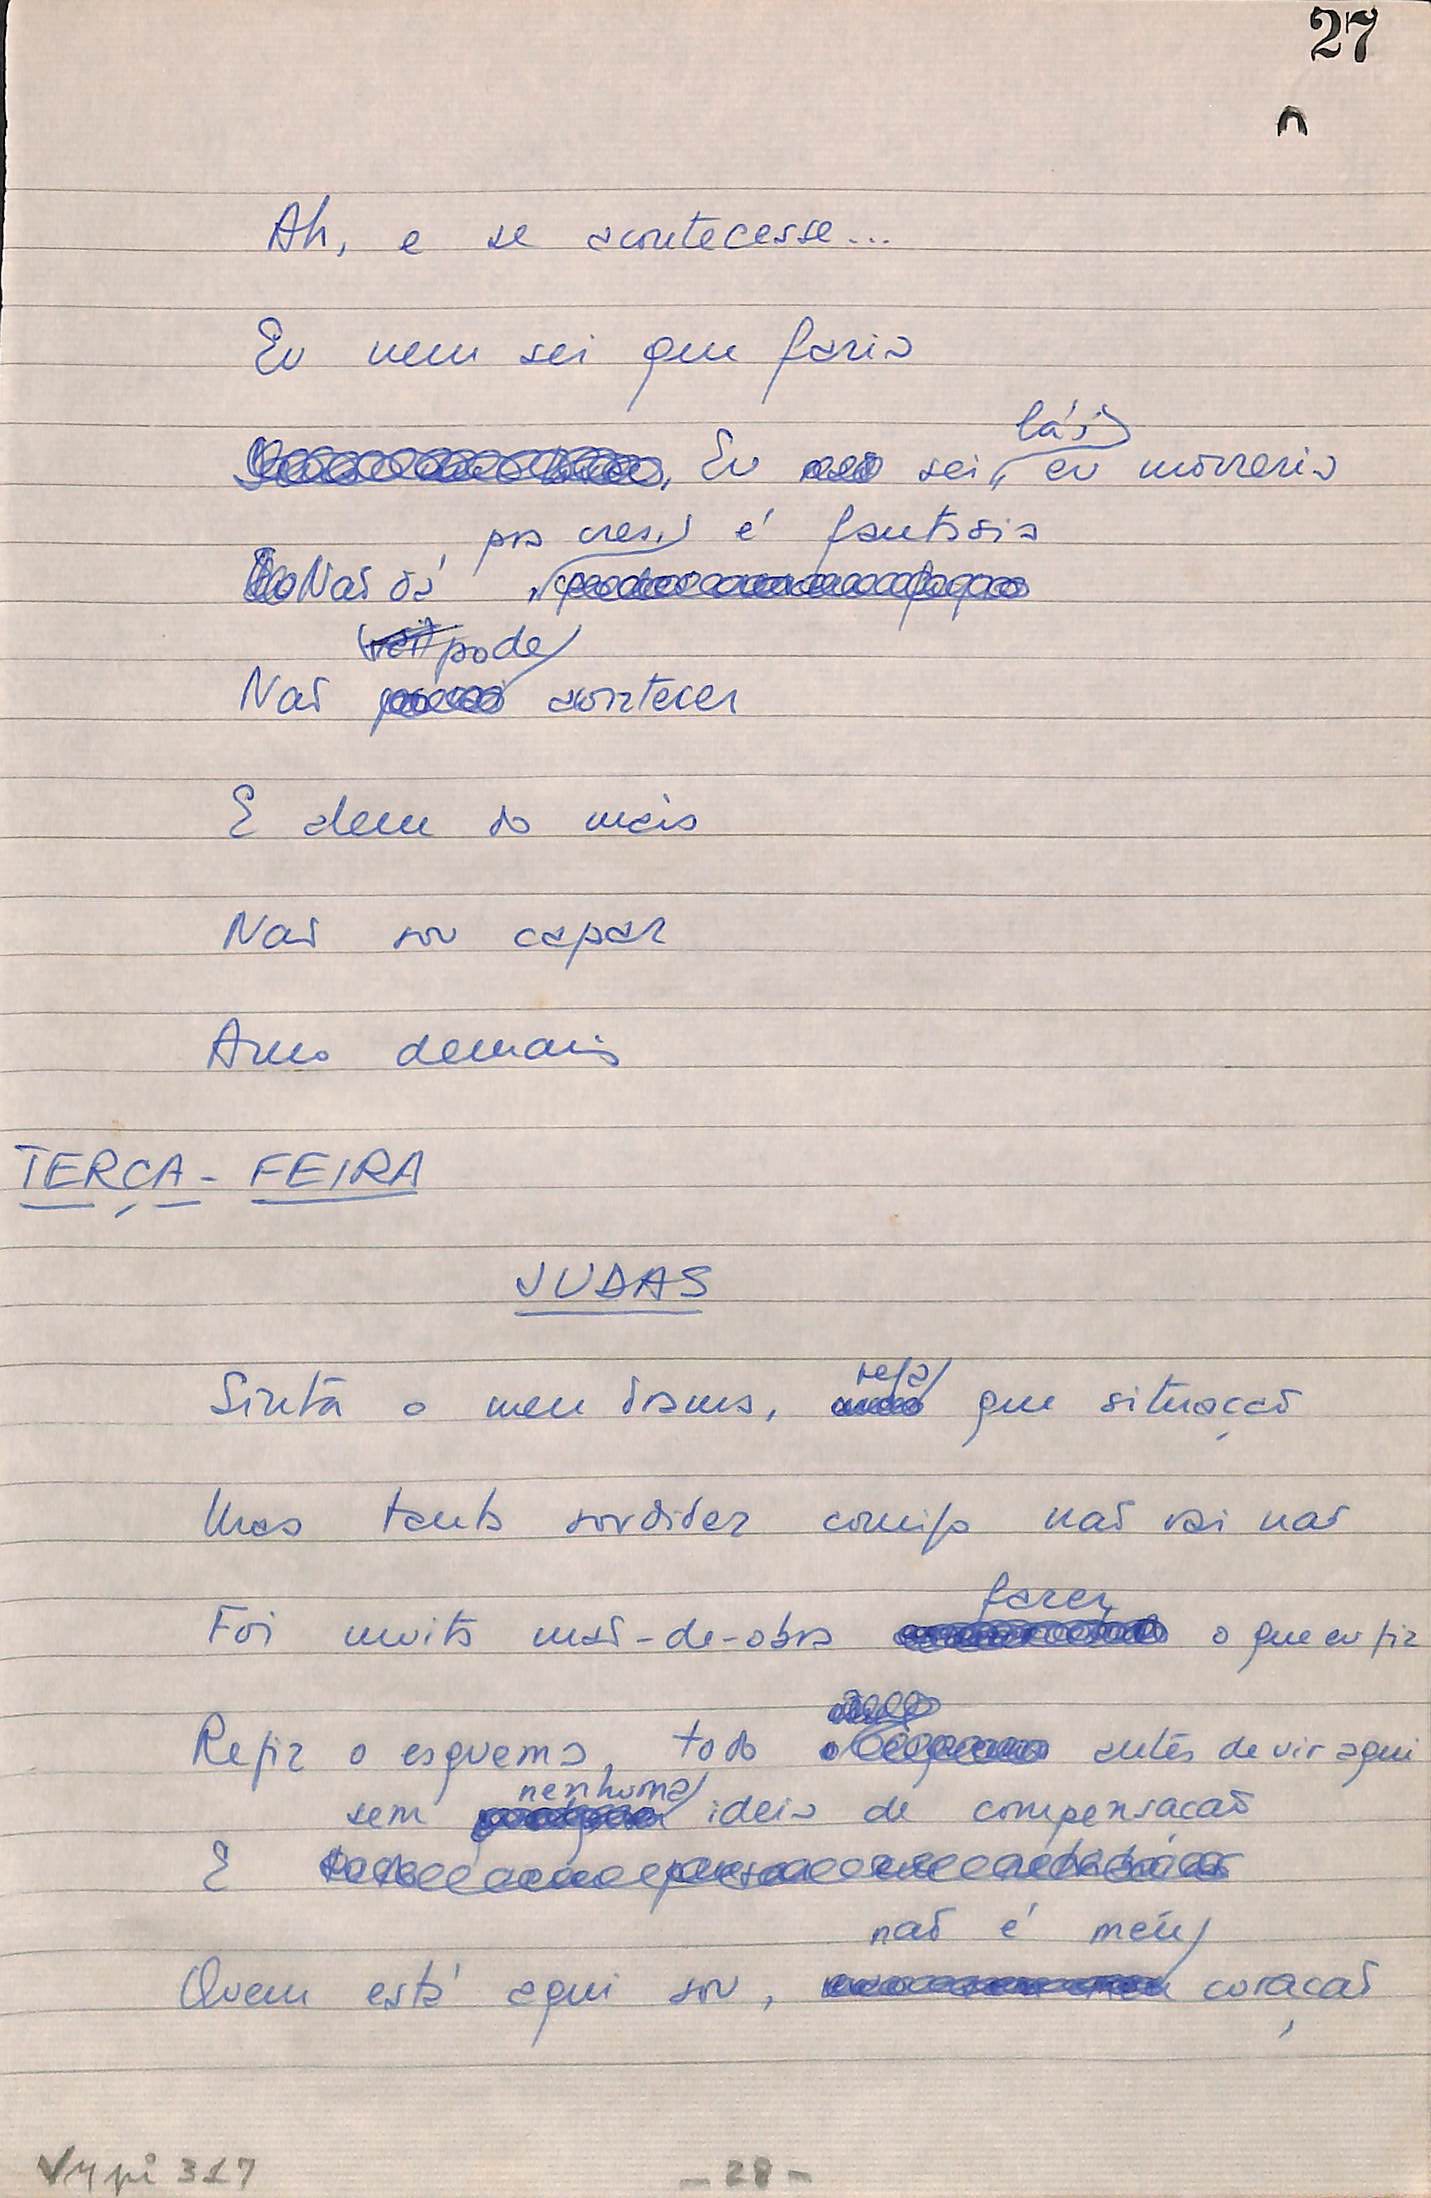 27
Ah, e se acontecesse...
Eu nem sei que faria
lá,
Eu sei, eu morreria
pra crer, é fantasia
Não dá,
pode
Não acontecer
E alem do mais
Não sou capaz
Amo demais
TERÇA-FEIRA
JUDAS
Sinta o meu drama, veja que situação
Mas tanta sordidez comigo não vai não
fazer
Foi muita mão-de-obra o que eu fiz
Refiz o esquema, todo antes de vir aqui
nenhuma
sem ideia de compensação
E
não é meu
Quem está aqui sou, coração
317
- 28 -